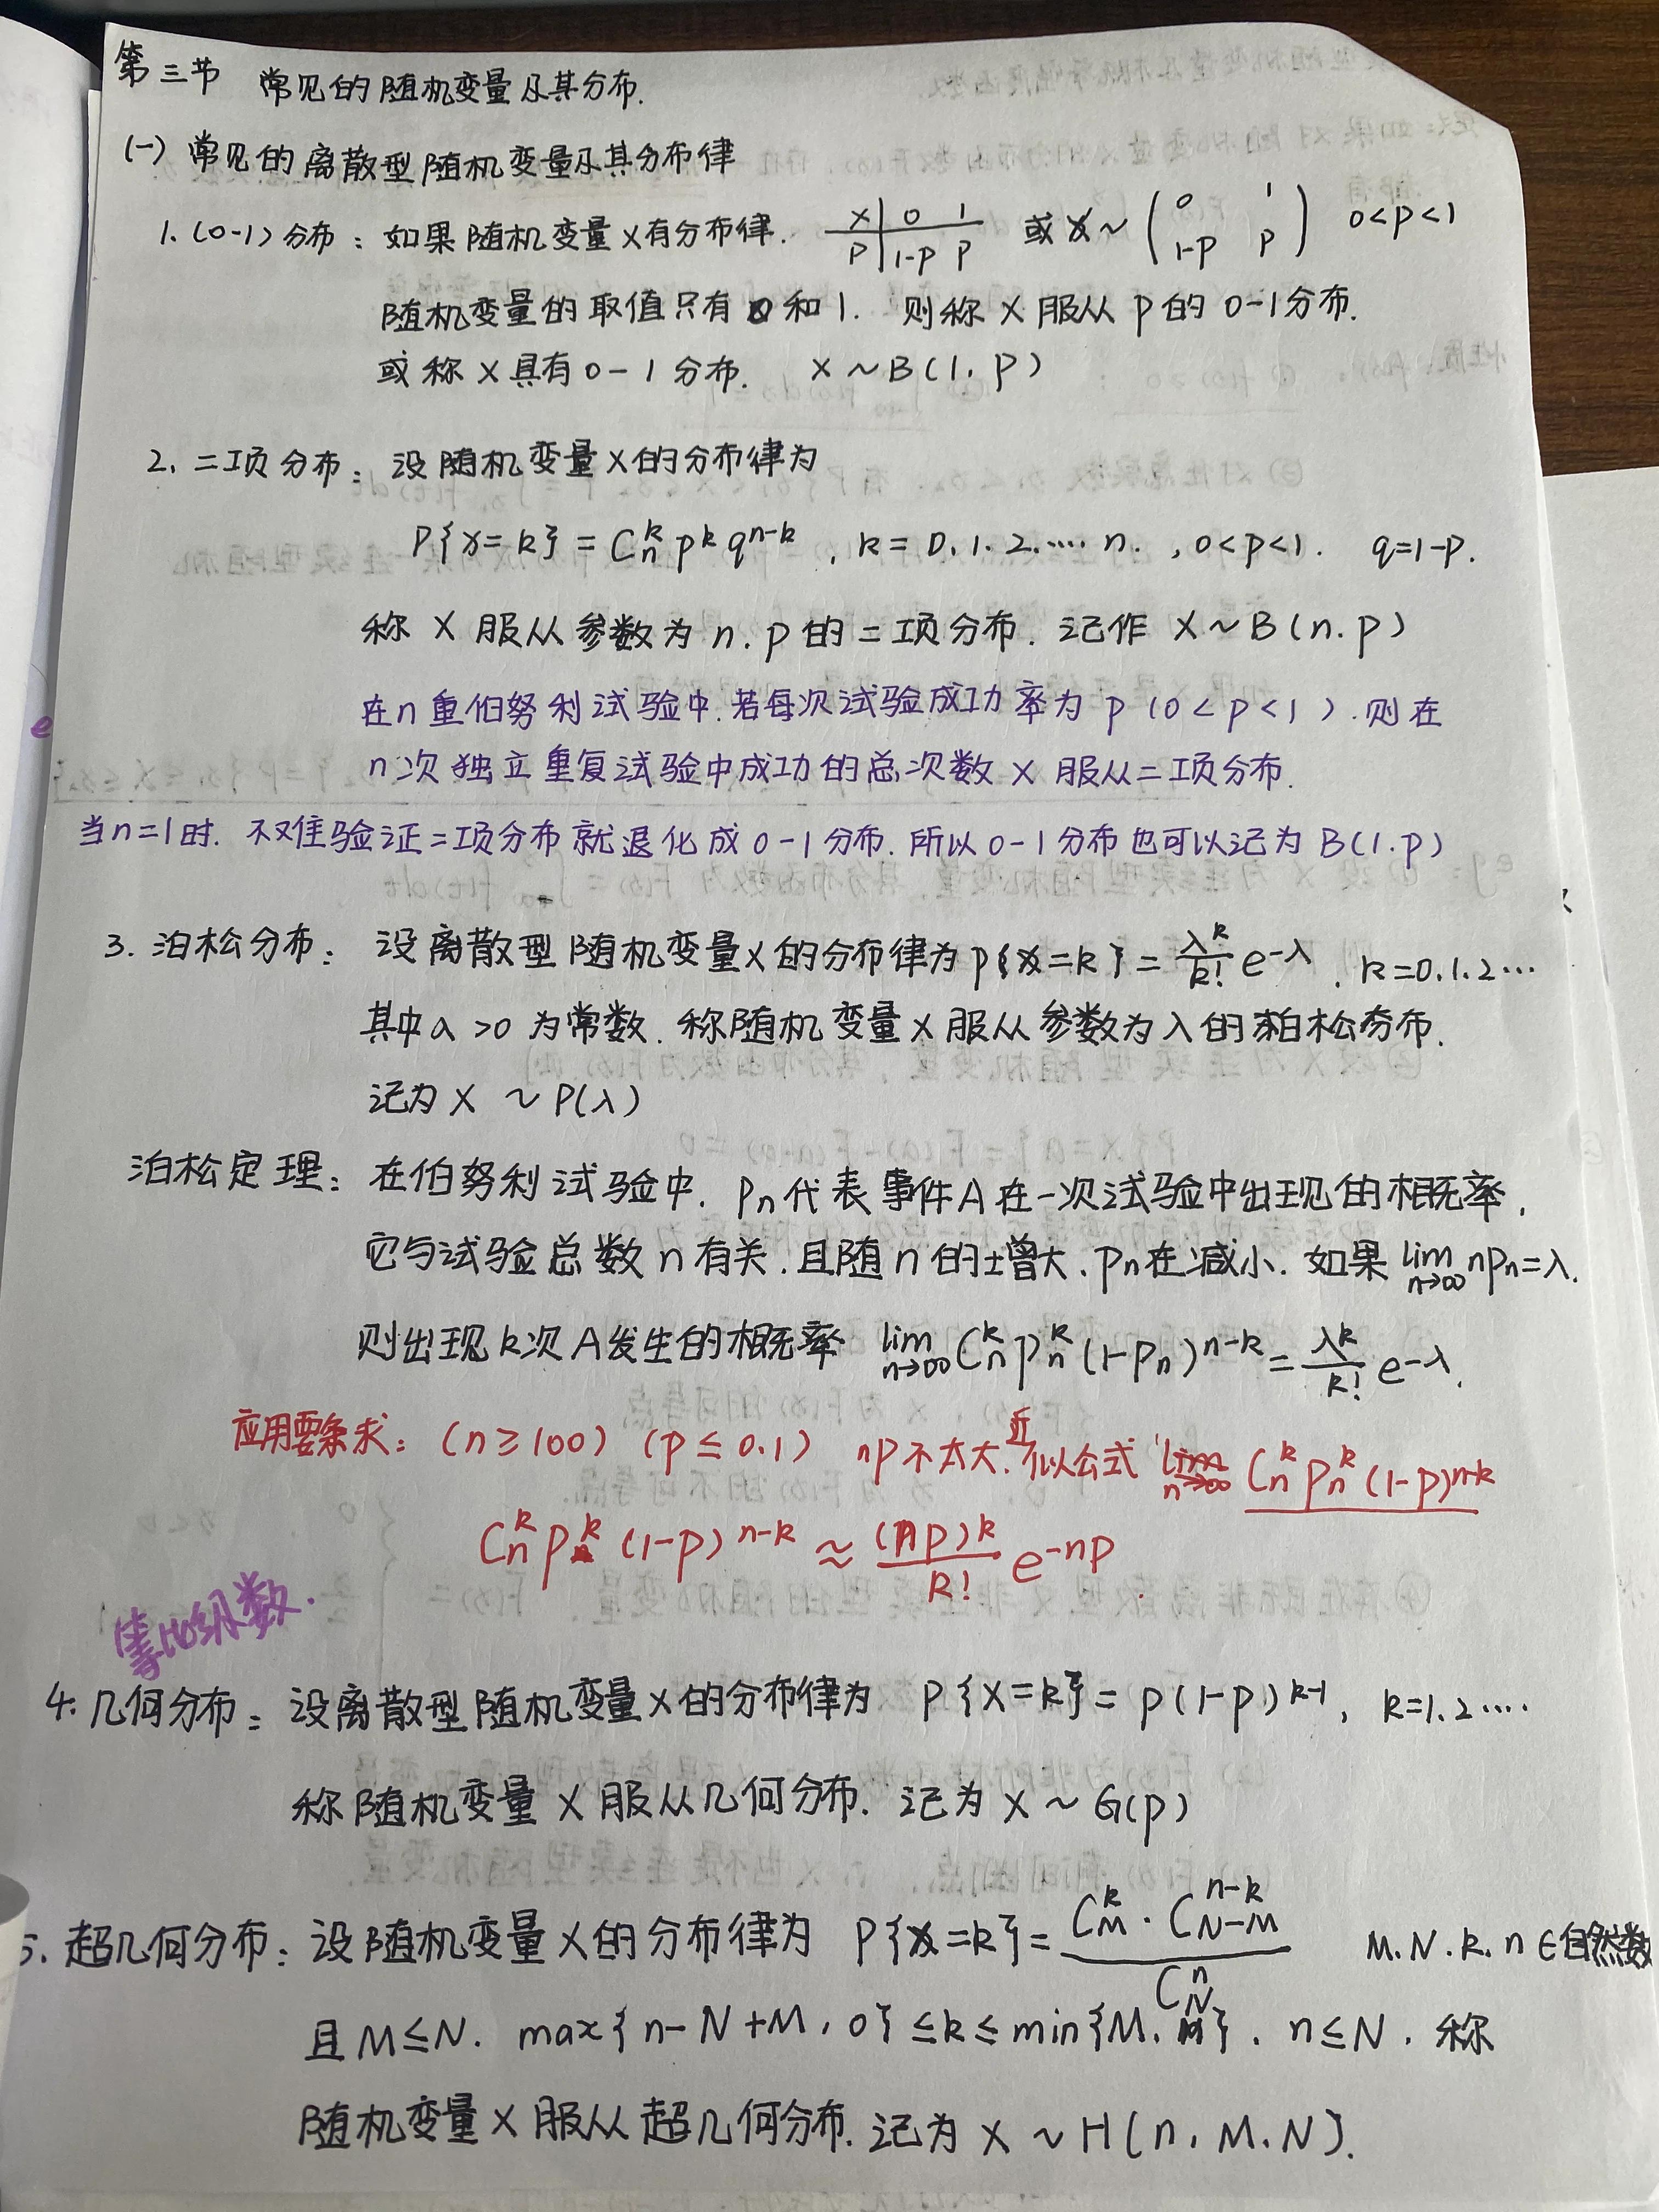 第三节 常见的随机变量及其分布.
(一) 常见的离散型随机变量及其分布律
1. (0-1) 分布: 如果随机变量X有分布律. X 0 1 P 1-p p 或 X ~ (0 1 1-p p) 0<p<1
随机变量的取值只有0和1. 则称X服从p的0-1分布.
或称X具有0-1分布. X~B(1.p)
2. 二项分布: 设随机变量X的分布律为
P{X=k} = Cₙᵏ pᵏ qⁿ⁻ᵏ , k=0.1.2.… n. , 0<p<1. q=1-p.
称X服从参数为n.p的二项分布. 记作 X~B(n.p)
在n重伯努利试验中.若每次试验成功率为p (0<p<1).则在
n次独立重复试验中成功的总次数X服从二项分布.
当n=1时. 不难验证二项分布就退化成0-1分布. 所以0-1分布也可以记为B(1.p)
3. 泊松分布: 设离散型随机变量X的分布律为P{X=k} = λᵏ/k! e^-λ . k=0.1.2…
其中a>0为常数. 称随机变量X服从参数为λ的泊松分布.
记为X ~ P(λ)
泊松定理: 在伯努利试验中. pₙ代表事件A在一次试验中出现的概率,
它与试验总数n有关.且随n的增大.pₙ在减小. 如果 lim n→∞ npₙ=λ.
则出现k次A发生的概率 lim n→∞ Cₙᵏ pₙᵏ (1-pₙ)ⁿ⁻ᵏ = λᵏ/k! e^-λ.
应用要求: (n≥100) (p≤0.1) np不太大.近似公式 lim n→∞ Cₙᵏ pₙᵏ (1-p)ⁿ⁻ᵏ
Cₙᵏ pᵏ (1-p)ⁿ⁻ᵏ ≈ (np)ᵏ/k! e^-np .
等比级数.
4. 几何分布: 设离散型随机变量X的分布律为 P{X=k} = p(1-p)ᵏ⁻¹, k=1.2….
称随机变量X服从几何分布. 记为X ~ G(p)
5. 超几何分布: 设随机变量X的分布律为 P{X=k} = C_M^k · C_{N-M}^{n-k} / C_N^n M.N.k.n∈自然数
且M≤N. max{n-N+M, 0} ≤k≤ min{M. n}. n≤N. 称
随机变量X服从超几何分布. 记为X ~ H(n, M.N).